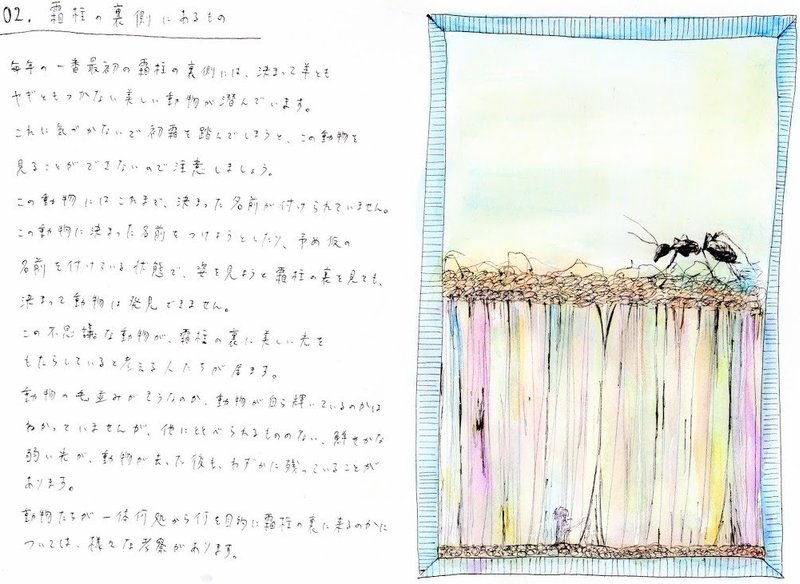 02. 霜柱の裏側にあるもの
毎年の一番最初の霜柱の裏側には、決まって羊とも
ヤギともつかない美しい動物が潜んでいます。
これに気づかないで初霜を踏んでしまうと、この動物を
見ることができないので注意しましょう。
この動物にはこれまで、決まった名前が付けられていません。
この動物に決まった名前をつけようとしたり、予め仮の
名前を付けている状態で、姿を見ようと霜柱の裏を見ても、
決まって動物は発見できません。
この不思議な動物が、霜柱の裏に美しい光を
もたらしていると考える人たちが居ます。
動物の毛並みがそうなのか、動物が自ら輝いているのかは
わかっていませんが、他にくらべられるもののない、鮮やかな
弱い光が、動物が去った後も、わずかに残っていることが
あります。
動物たちが一体何処から何を目的に霜柱の裏に来るのかに
ついては、様々な考察があります。